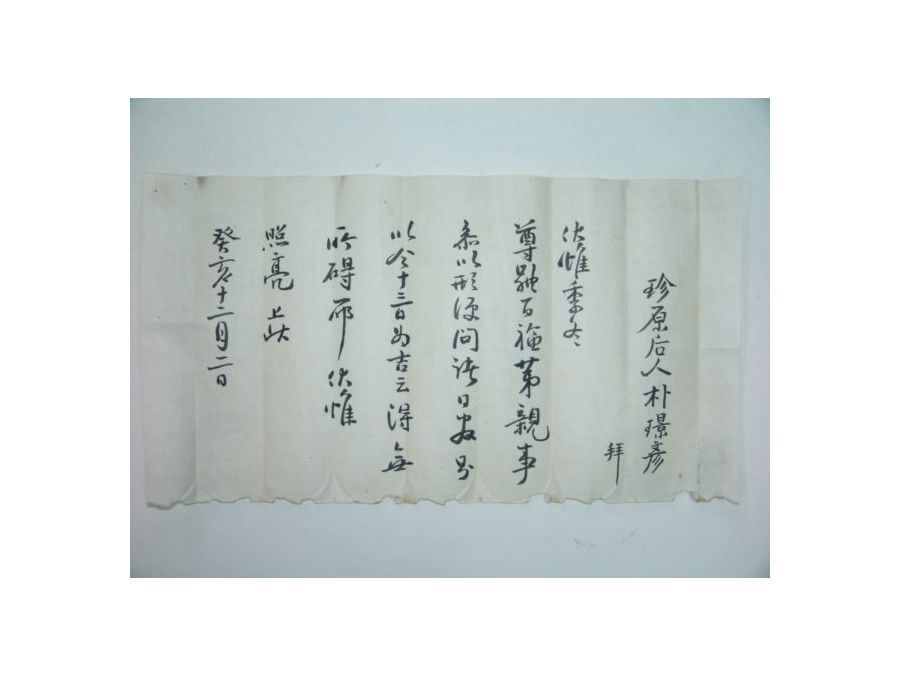 珍原后人朴璟彦
拜
伏惟季冬
尊體百福第親事
以形便问諸日
以今十三日為吉云得無
所碍耶伏惟
照亮上狀
癸亥十二月二日